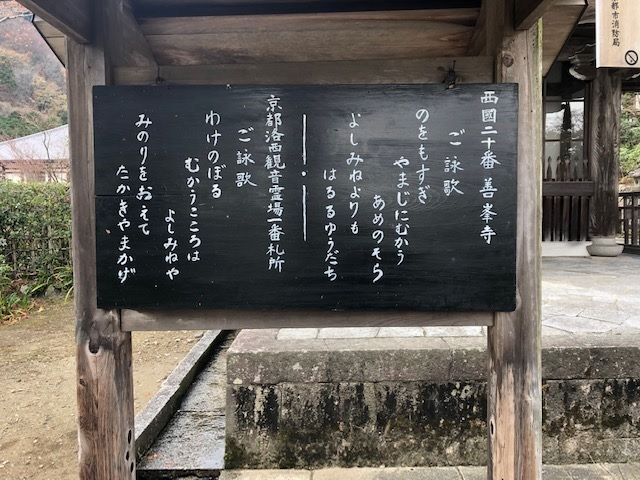 西國二十番 善峯寺
ご詠歌
のをもすぎ
やまじにむかう
あめのそら
よしみねよりも
はるるゆうだち
京都洛西観音霊場一番札所
ご詠歌
わけのぼる
むかうこころは
よしみねや
みのりをおえて
たかきやまかげ
都市消防局